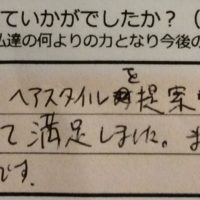 ていかがでしたか？（
仏達の何よりの力となり今後の
ヘアスタイルを提案
て満足しました。ま
です.